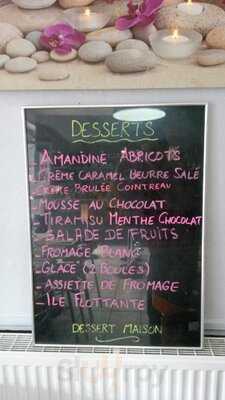 DESSERTS
- AMANDINE ABRICOTS
- CRÈME CARAMEL BEURRE SALÉ
- CRÈME BRULÉE COINTREAU
- MOUSSE AU CHOCOLAT
- TIRAMISU MENTHE CHOCOLAT
- SALADE DE FRUITS
- FROMAGE BLANC
- GLACE (2 BOULES)
- ASSIETTE DE FROMAGE
- ILE FLOTTANTE
DESSERT MAISON